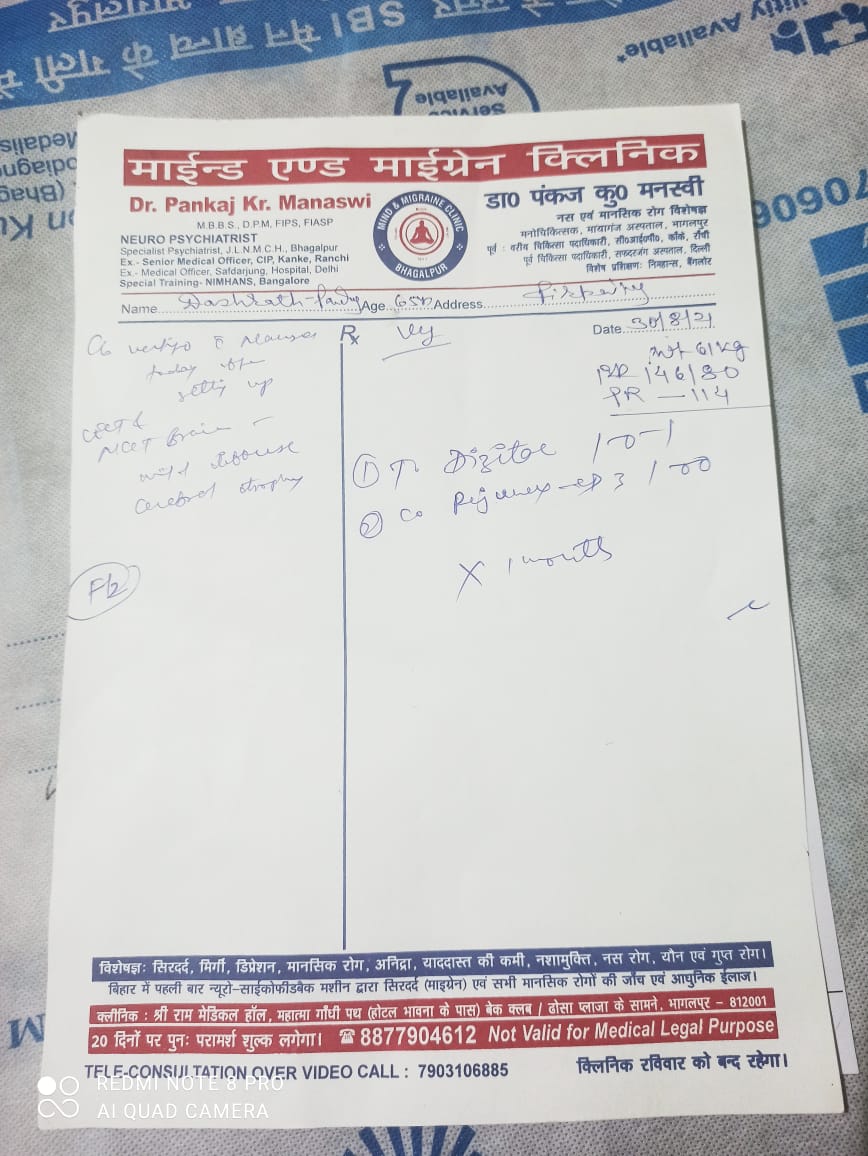 Available*
Service
Available
माईन्ड एण्ड माईग्रेन क्लिनिक
Dr. Pankaj Kr. Manaswi
M.B.B.S., D.P.M, FIPS, FIASP
NEURO PSYCHIATRIST
Specialist Psychiatrist, J.L.N.M.C.H., Bhagalpur
Ex.- Senior Medical Officer, CIP, Kanke, Ranchi
Ex.- Medical Officer, Safdarjung, Hospital, Delhi
Special Training- NIMHANS, Bangalore
MIND & MIGRAINE CLINIC
BHAGALPUR
डा० पंकज कु० मनस्वी
नस एवं मानसिक रोग विशेषज्ञ
मनोचिकित्सक, मायागंज अस्पताल, भागलपुर
पूर्व : वरीय चिकित्सा पदाधिकारी, सी०आई०पी०, काँके, राँची
पूर्व चिकित्सा पदाधिकारी, सफदरजंग अस्पताल, दिल्ली
विशेष प्रशिक्षण: निमहान्स, बैंगलोर
Name Dashrath Age 65 Address
Date 30/8/21
Rx
wt 61kg
BP 146/80
PR - 114
vertigo
today
NCCT Brain -
mild diffuse
cerebral atrophy
F/2
① T. 1-0-1
② 1-0-0
X 1 month
विशेषज्ञ: सिरदर्द, मिर्गी, डिप्रेशन, मानसिक रोग, अनिद्रा, याददास्त की कमी, नशामुक्ति, नस रोग, यौन एवं गुप्त रोग।
बिहार में पहली बार न्यूरो-साईकोफीडबैक मशीन द्वारा सिरदर्द (माइग्रेन) एवं सभी मानसिक रोगों की जाँच एवं आधुनिक ईलाज।
क्लीनिक : श्री राम मेडिकल हॉल, महात्मा गाँधी पथ (होटल भावना के पास) बेक क्लब / ढोसा प्लाजा के सामने, भागलपुर - 812001
20 दिनों पर पुनः परामर्श शुल्क लगेगा। ☎ 8877904612 Not Valid for Medical Legal Purpose
TELE-CONSULTATION OVER VIDEO CALL : 7903106885
क्लिनिक रविवार को बन्द रहेगा।
REDMI NOTE 8 PRO
AI QUAD CAMERA